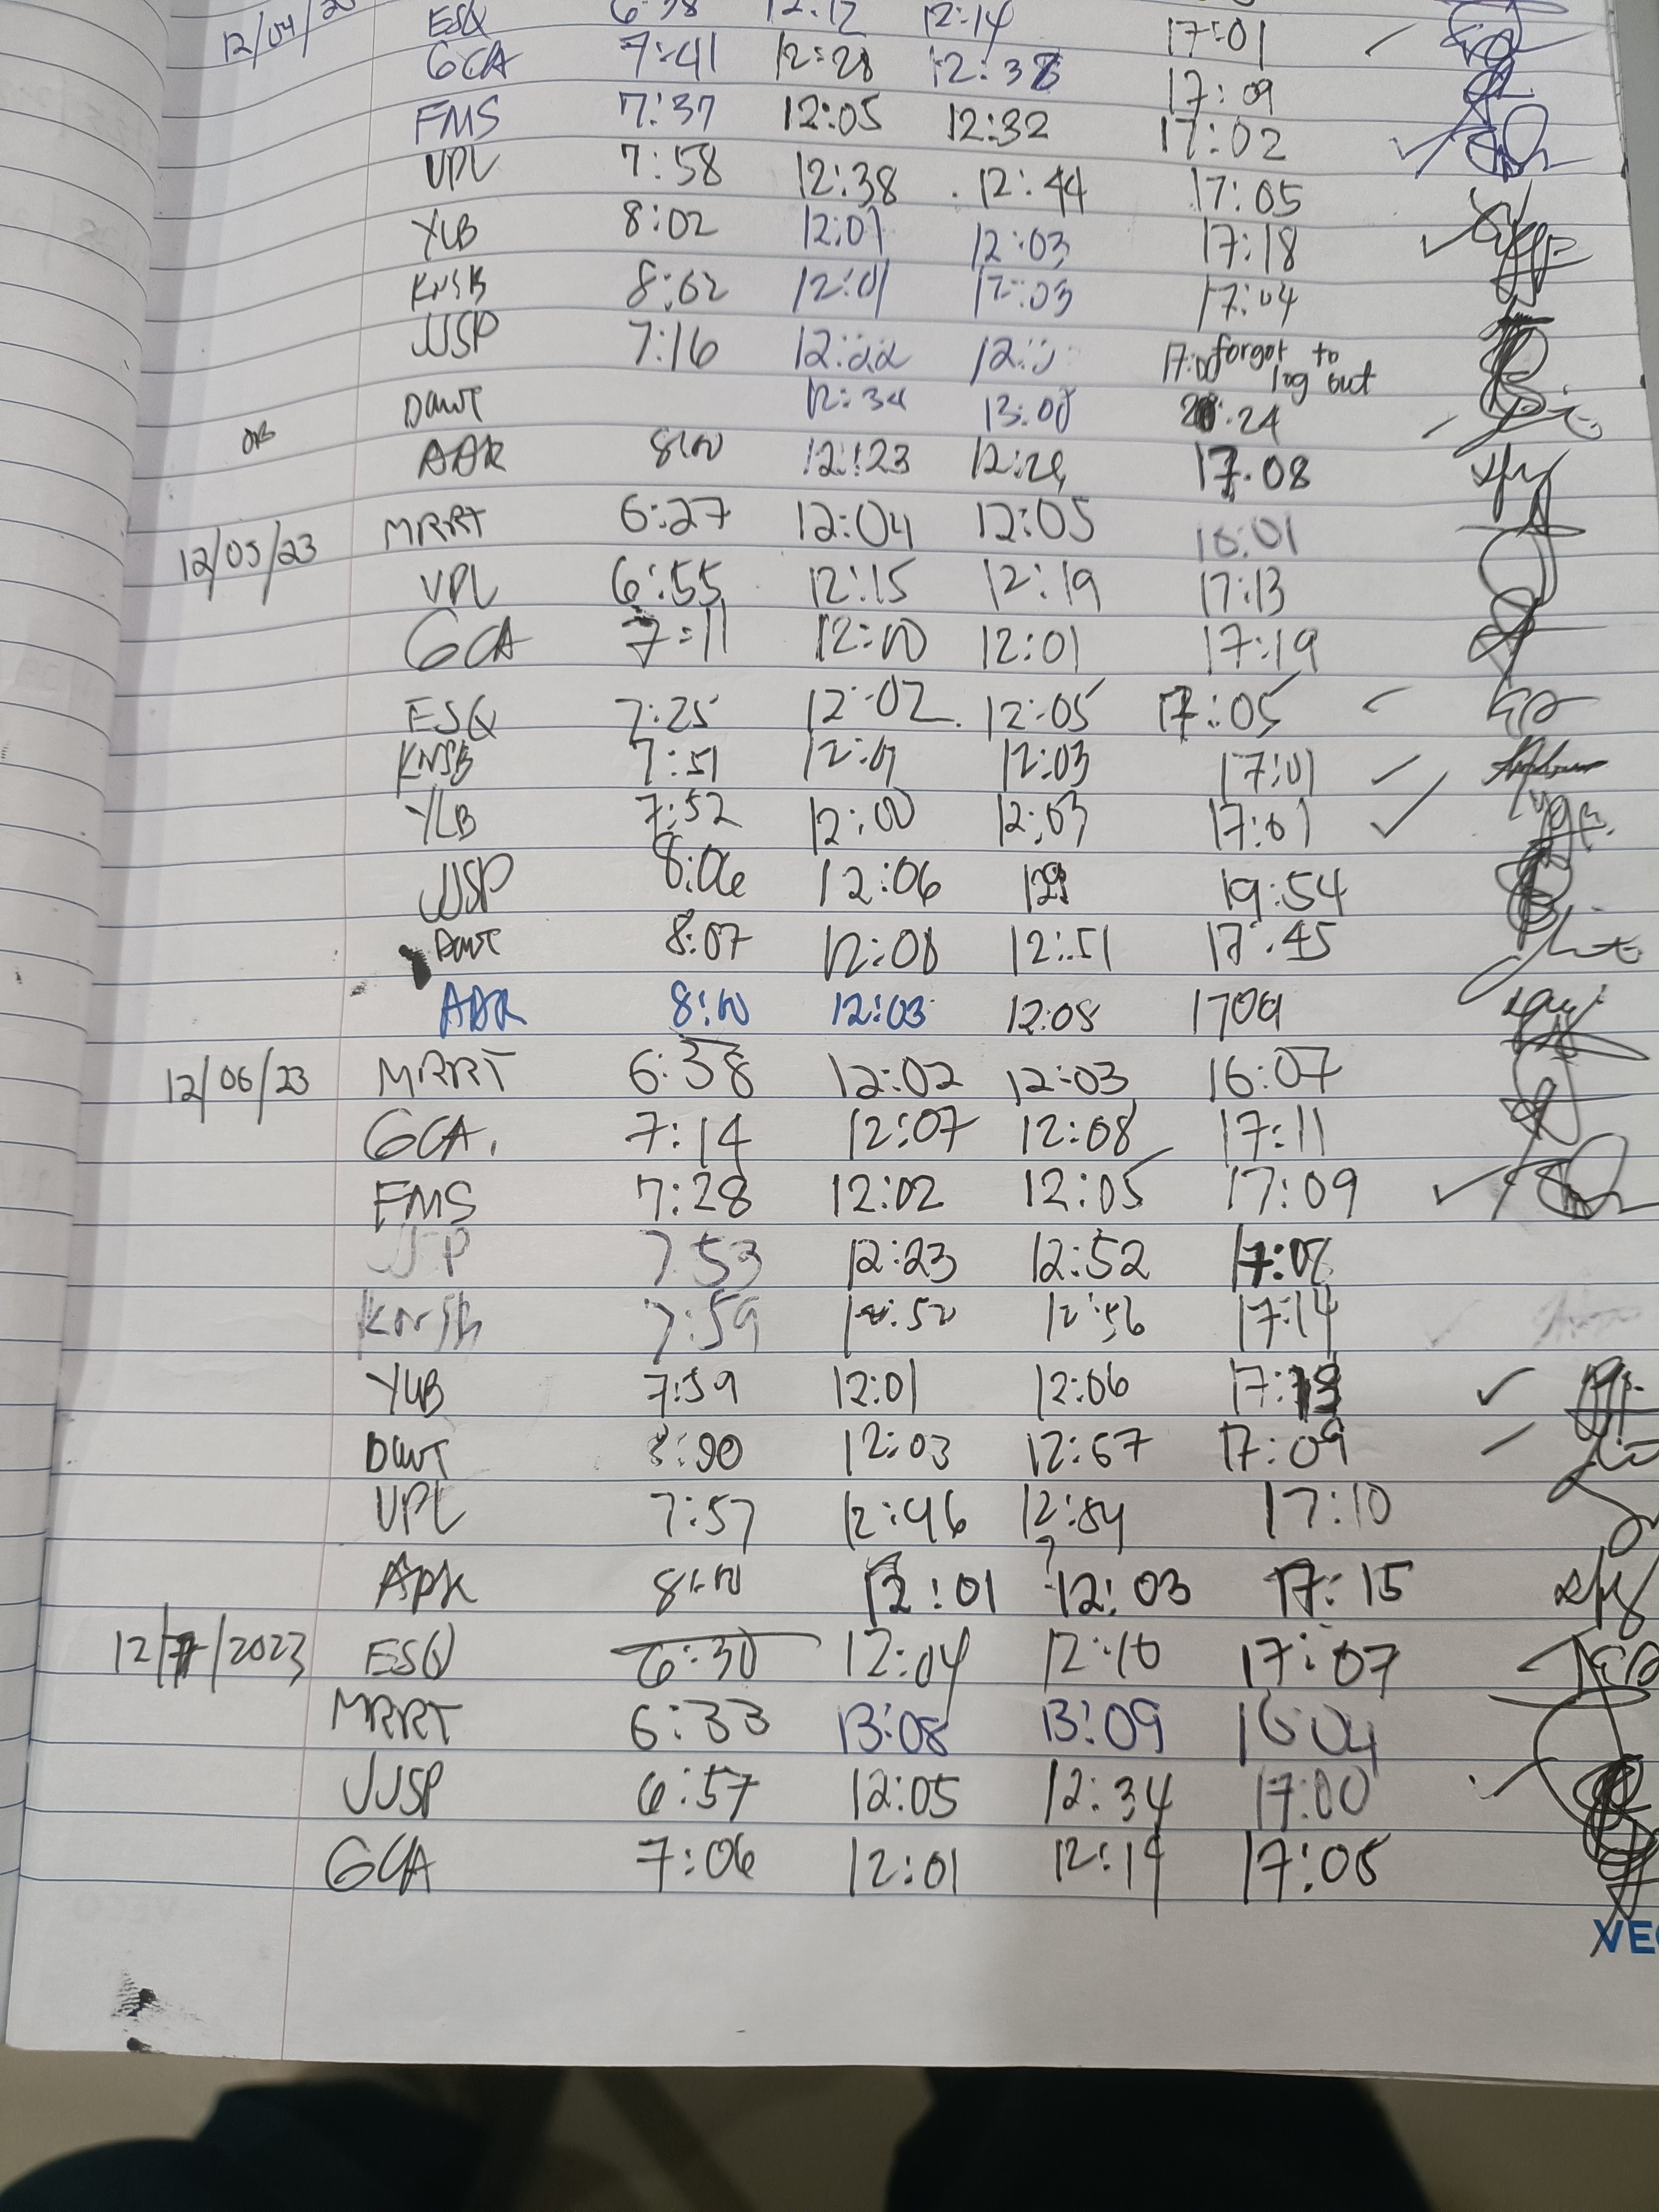 12/04/ ESQ 6:38 12:12 12:14 17:01
GCA 7:41 12:28 12:38 17:09
FMS 7:37 12:05 12:32 17:02
VPL 7:58 12:38 12:44 17:05
YLB 8:02 12:01 12:03 17:18
KNSB 8:02 12:01 12:03 17:04
JJSP 7:16 12:22 17:00 forgot to log out
OB DWT 12:34 13:00 20:24
ADR 8:00 12:23 17:08
12/05/23 MRRT 6:27 12:04 12:05 16:01
VPL 6:55 12:15 12:19 17:13
GCA 7:11 12:00 12:01 17:19
ESQ 7:25 12:02 12:05 17:05
KNSB 7:51 12:01 12:03 17:01
YLB 7:52 12:00 12:03 17:01
JJSP 8:06 12:06 19:54
DWT 8:07 12:08 12:51 17:45
ADR 8:00 12:03 12:08 1709
12/06/23 MRRT 6:38 12:02 12:03 16:07
GCA. 7:14 12:07 12:08 17:11
FMS 7:28 12:02 12:05 17:09
JJSP 7 53 12:23 12:52 17:08
KNSB 7:59 12:52 12:56 17:14
YLB 7:59 12:01 12:06 17:13
DWT 8:00 12:03 12:57 17:09
VPL 7:57 12:46 12:54 17:10
ADR 8:00 12:01 12:03 17:15
12/7/2023 ESQ 6:30 12:04 12:10 17:07
MRRT 6:33 13:08 13:09 16:04
JJSP 6:57 12:05 12:34 17:00
GCA 7:06 12:01 12:19 17:05